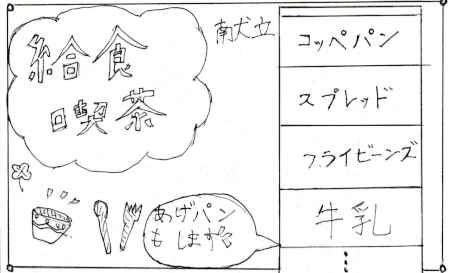 給食
喫茶
南犬立
コッペパン
スプレッド
フライビーンズ
牛乳
あげパン
もします